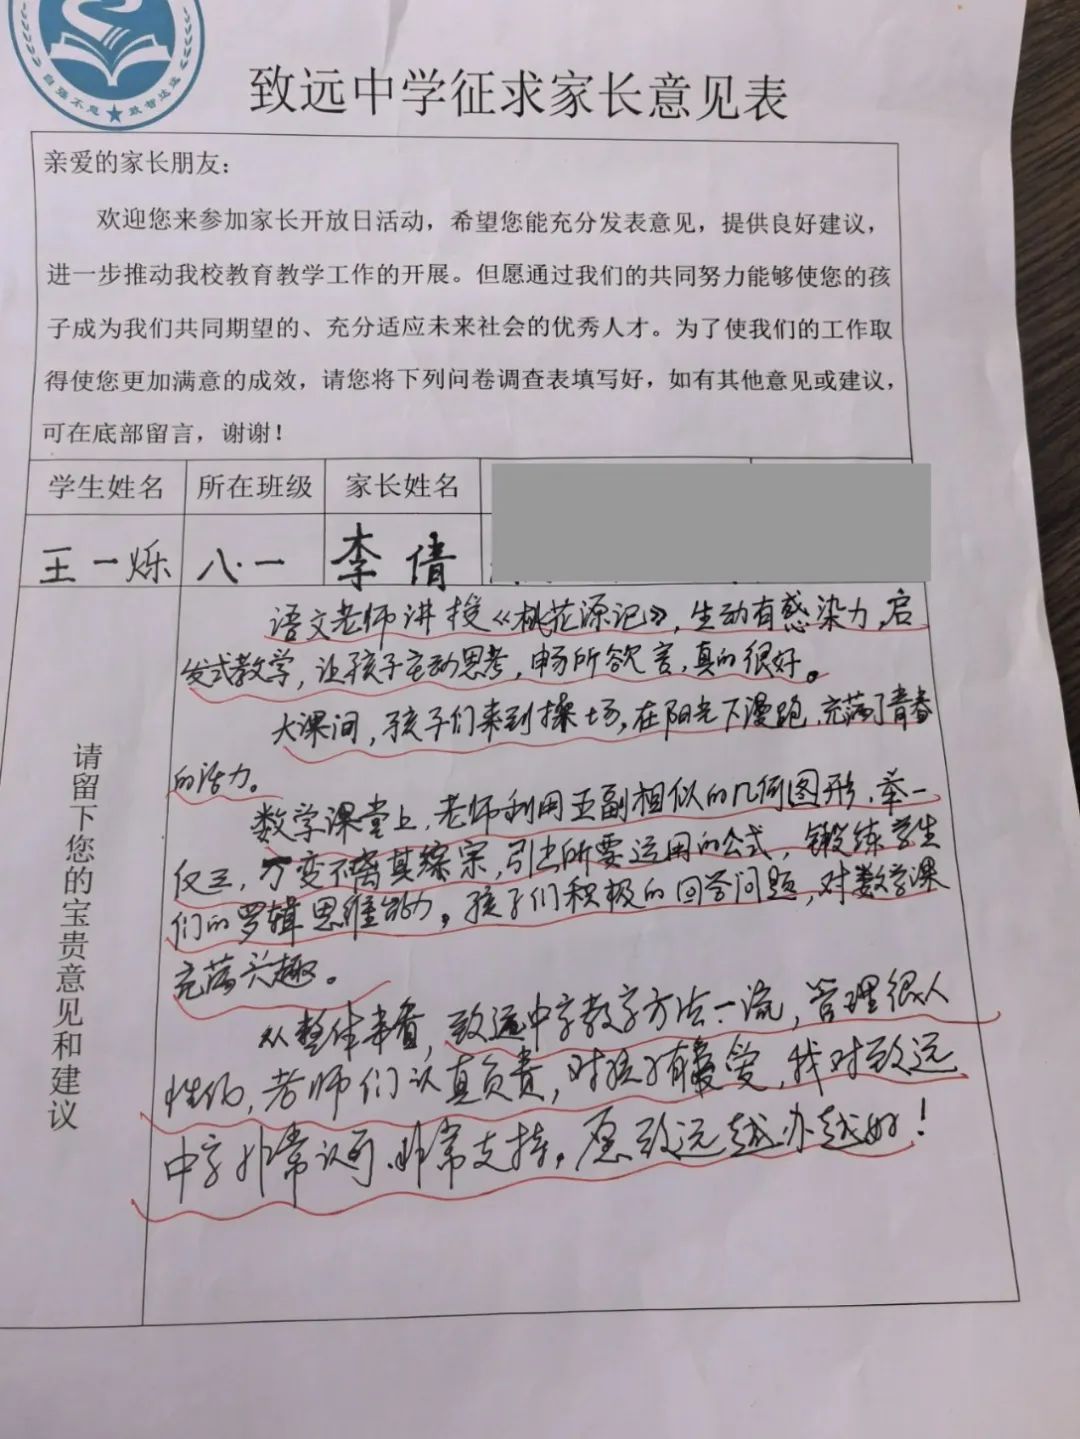 自强不息★致智达远
致远中学征求家长意见表
亲爱的家长朋友：
欢迎您来参加家长开放日活动，希望您能充分发表意见，提供良好建议，
进一步推动我校教育教学工作的开展。但愿通过我们的共同努力能够使您的孩
子成为我们共同期望的、充分适应未来社会的优秀人才。为了使我们的工作取
得使您更加满意的成效，请您将下列问卷调查表填写好，如有其他意见或建议，
可在底部留言，谢谢！
学生姓名 所在班级 家长姓名
王一烁 八·一 李倩
请留下您的宝贵意见和建议
语文老师讲授《桃花源记》，生动有感染力，启
发式教学，让孩子主动思考，畅所欲言，真的很好。
大课间，孩子们来到操场，在阳光下漫跑，充满了青春
的活力。
数学课堂上，老师利用五副相似的几何图形，举一
仅三，万变不离其综宗，引出所要运用的公式，锻练学生
们的罗辑思维能力。孩子们积极的回答问题，对数学课
充满兴趣。
从整体来看，致远中学教学方法一流，管理很人
性化，老师们认真负责，对孩子有爱，我对致远
中学非常认可、非常支持。愿致远越办越好！